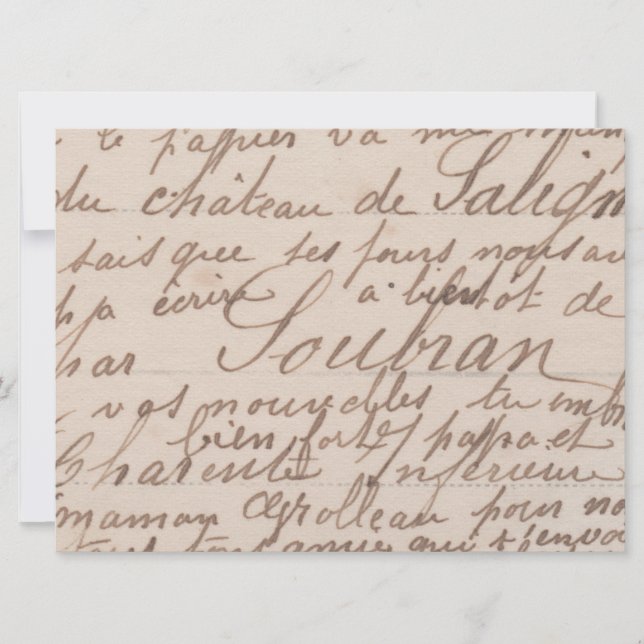 le papier va me
du château de Salign
sais que ses jours nous av
pa écrire a bientôt de
par Soubran
vos nouvelles tu emb
bien fort papa et
Charente Inférieure
maman Grolleau pour no
tous amie qui t'envo